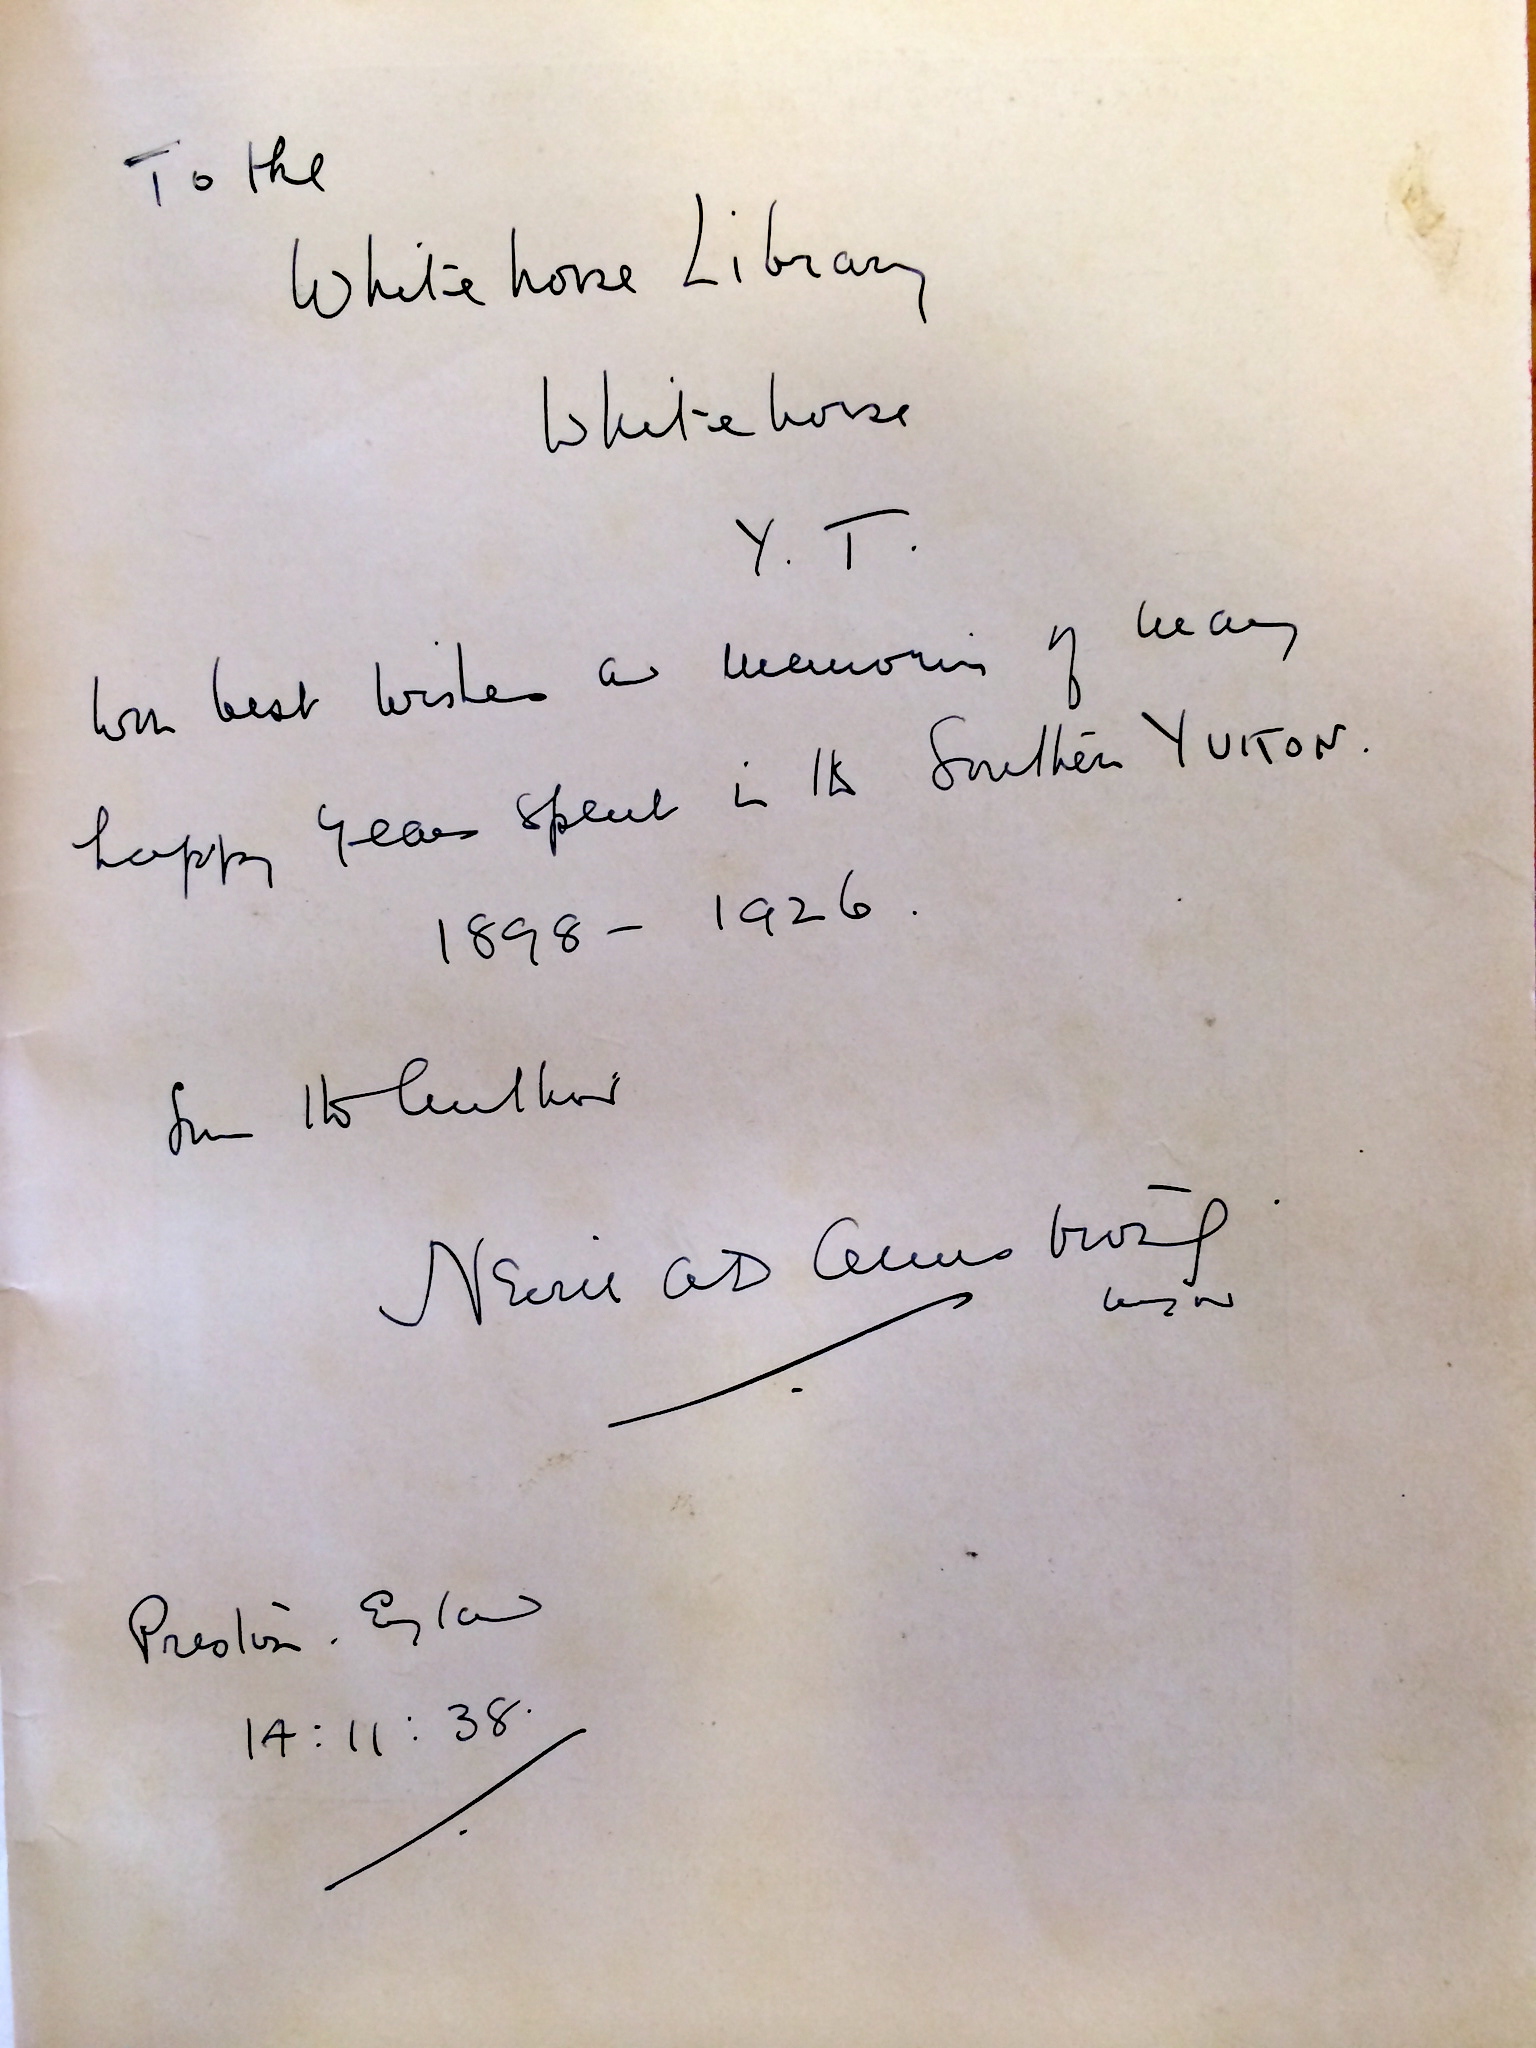 To the
Whitehorse Library
Whitehorse
Y. T.
With best wishes and memories of many
happy years spent in the Southern YUKON.
1898 - 1926.
From the Author
Nevill A D Armstrong.
Major
Preston. England
14:11:38.